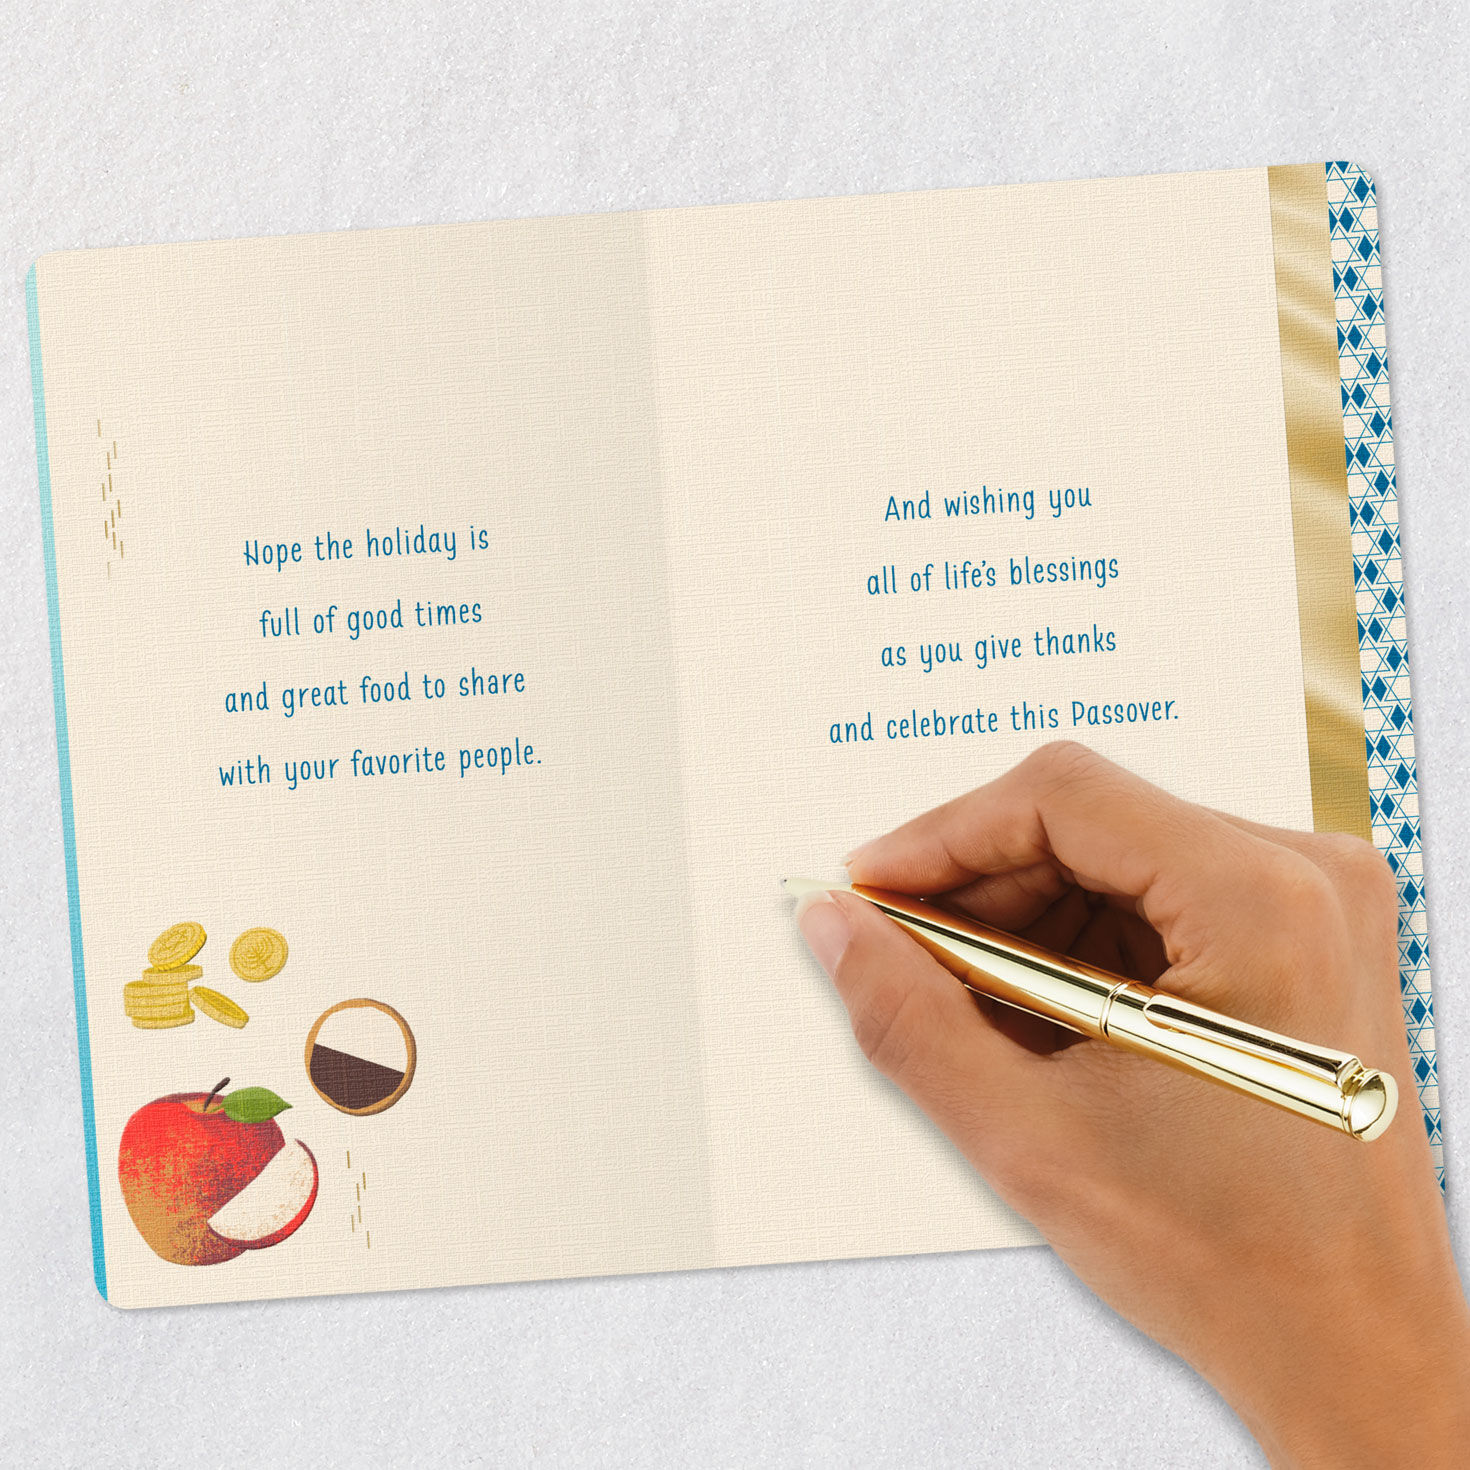 Hope the holiday is
full of good times
and great food to share
with your favorite people.
And wishing you
all of life's blessings
as you give thanks
and celebrate this Passover.